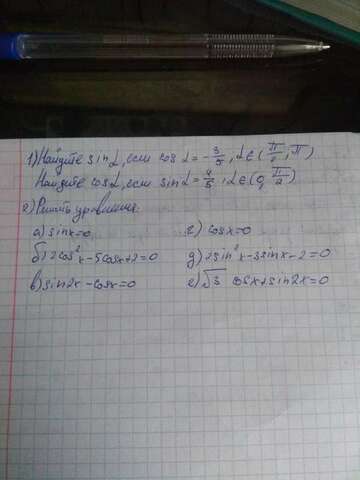 1) Найдите sinα, если cosα = -3/5, α∈(π/2, π)
Найдите cosα, если sinα = 4/5, α∈(0, π/2)
2) Решить уравнения:
а) sinx=0 г) cosx=0
б) 2cos²x-5cosx+2=0 д) 2sin²x-3sinx-2=0
в) sin2x-cosx=0 е) √3 cosx+sin2x=0